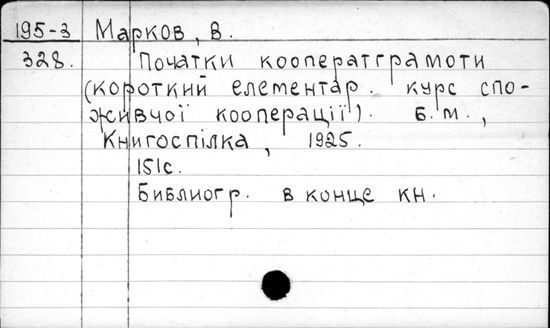 195-3 Марков, В.
328. Початки кооператграмоти
(короткий елементар. курс спо-
живчої кооперації). Б.М.,
Книгоспілка, 1925.
151с.
Библиогр. в конце кн.